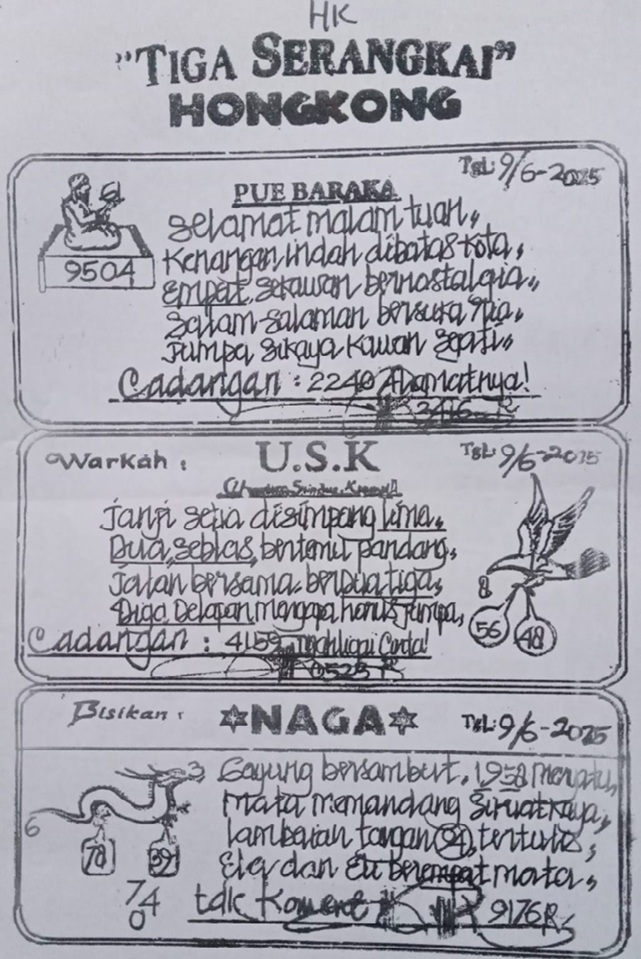 HK
"TIGA SERANGKAI"
HONGKONG
TgL: 9/6-2025
PUE BARAKA
Selamat malam tuan,
Kenangan indah dibatas kota,
9504
Empat sekawan bernostalgia,
Salam-salaman bersuka ria,
Jumpa sikaya kawan sejati,
Cadangan : 2240 Alamatnya!
3416
Warkah :
U.S.K
TgL: 9/6-2025
Janji setia disimpang lima,
Dua, seblas, bertemu pandang,
Jalan bersama berdua tiga,
8
Diga Delapan mengapa harus jumpa,
56
48
Cadangan : 4159
0525 R
Bisikan :
NAGA
TgL: 9/6-2025
3
Gayung bersambut, 1958 menyatu,
Mata memandang
6
lambaian tangan 94, tentu
78
39
dan berempat mata,
74
0
tdk Koment
9176R